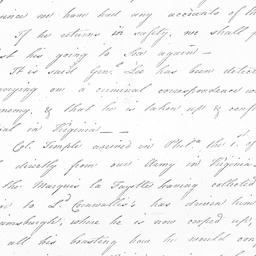 we have had any accounts of th
If he returns in safety, we shall p
his going to Sea again —
It is said, Genl. Lee has been detec
on a criminal correspondence w
enemy, & that he is taken up & conf
in Virginia — —
Col. Temple arrived in Phila. the 1st of
directly from our Army in Virginia
the Marquis la Fayette having collected
to Ld. Cornwallis's has driven him
where he is now cooped up,
all his boasting how he would con